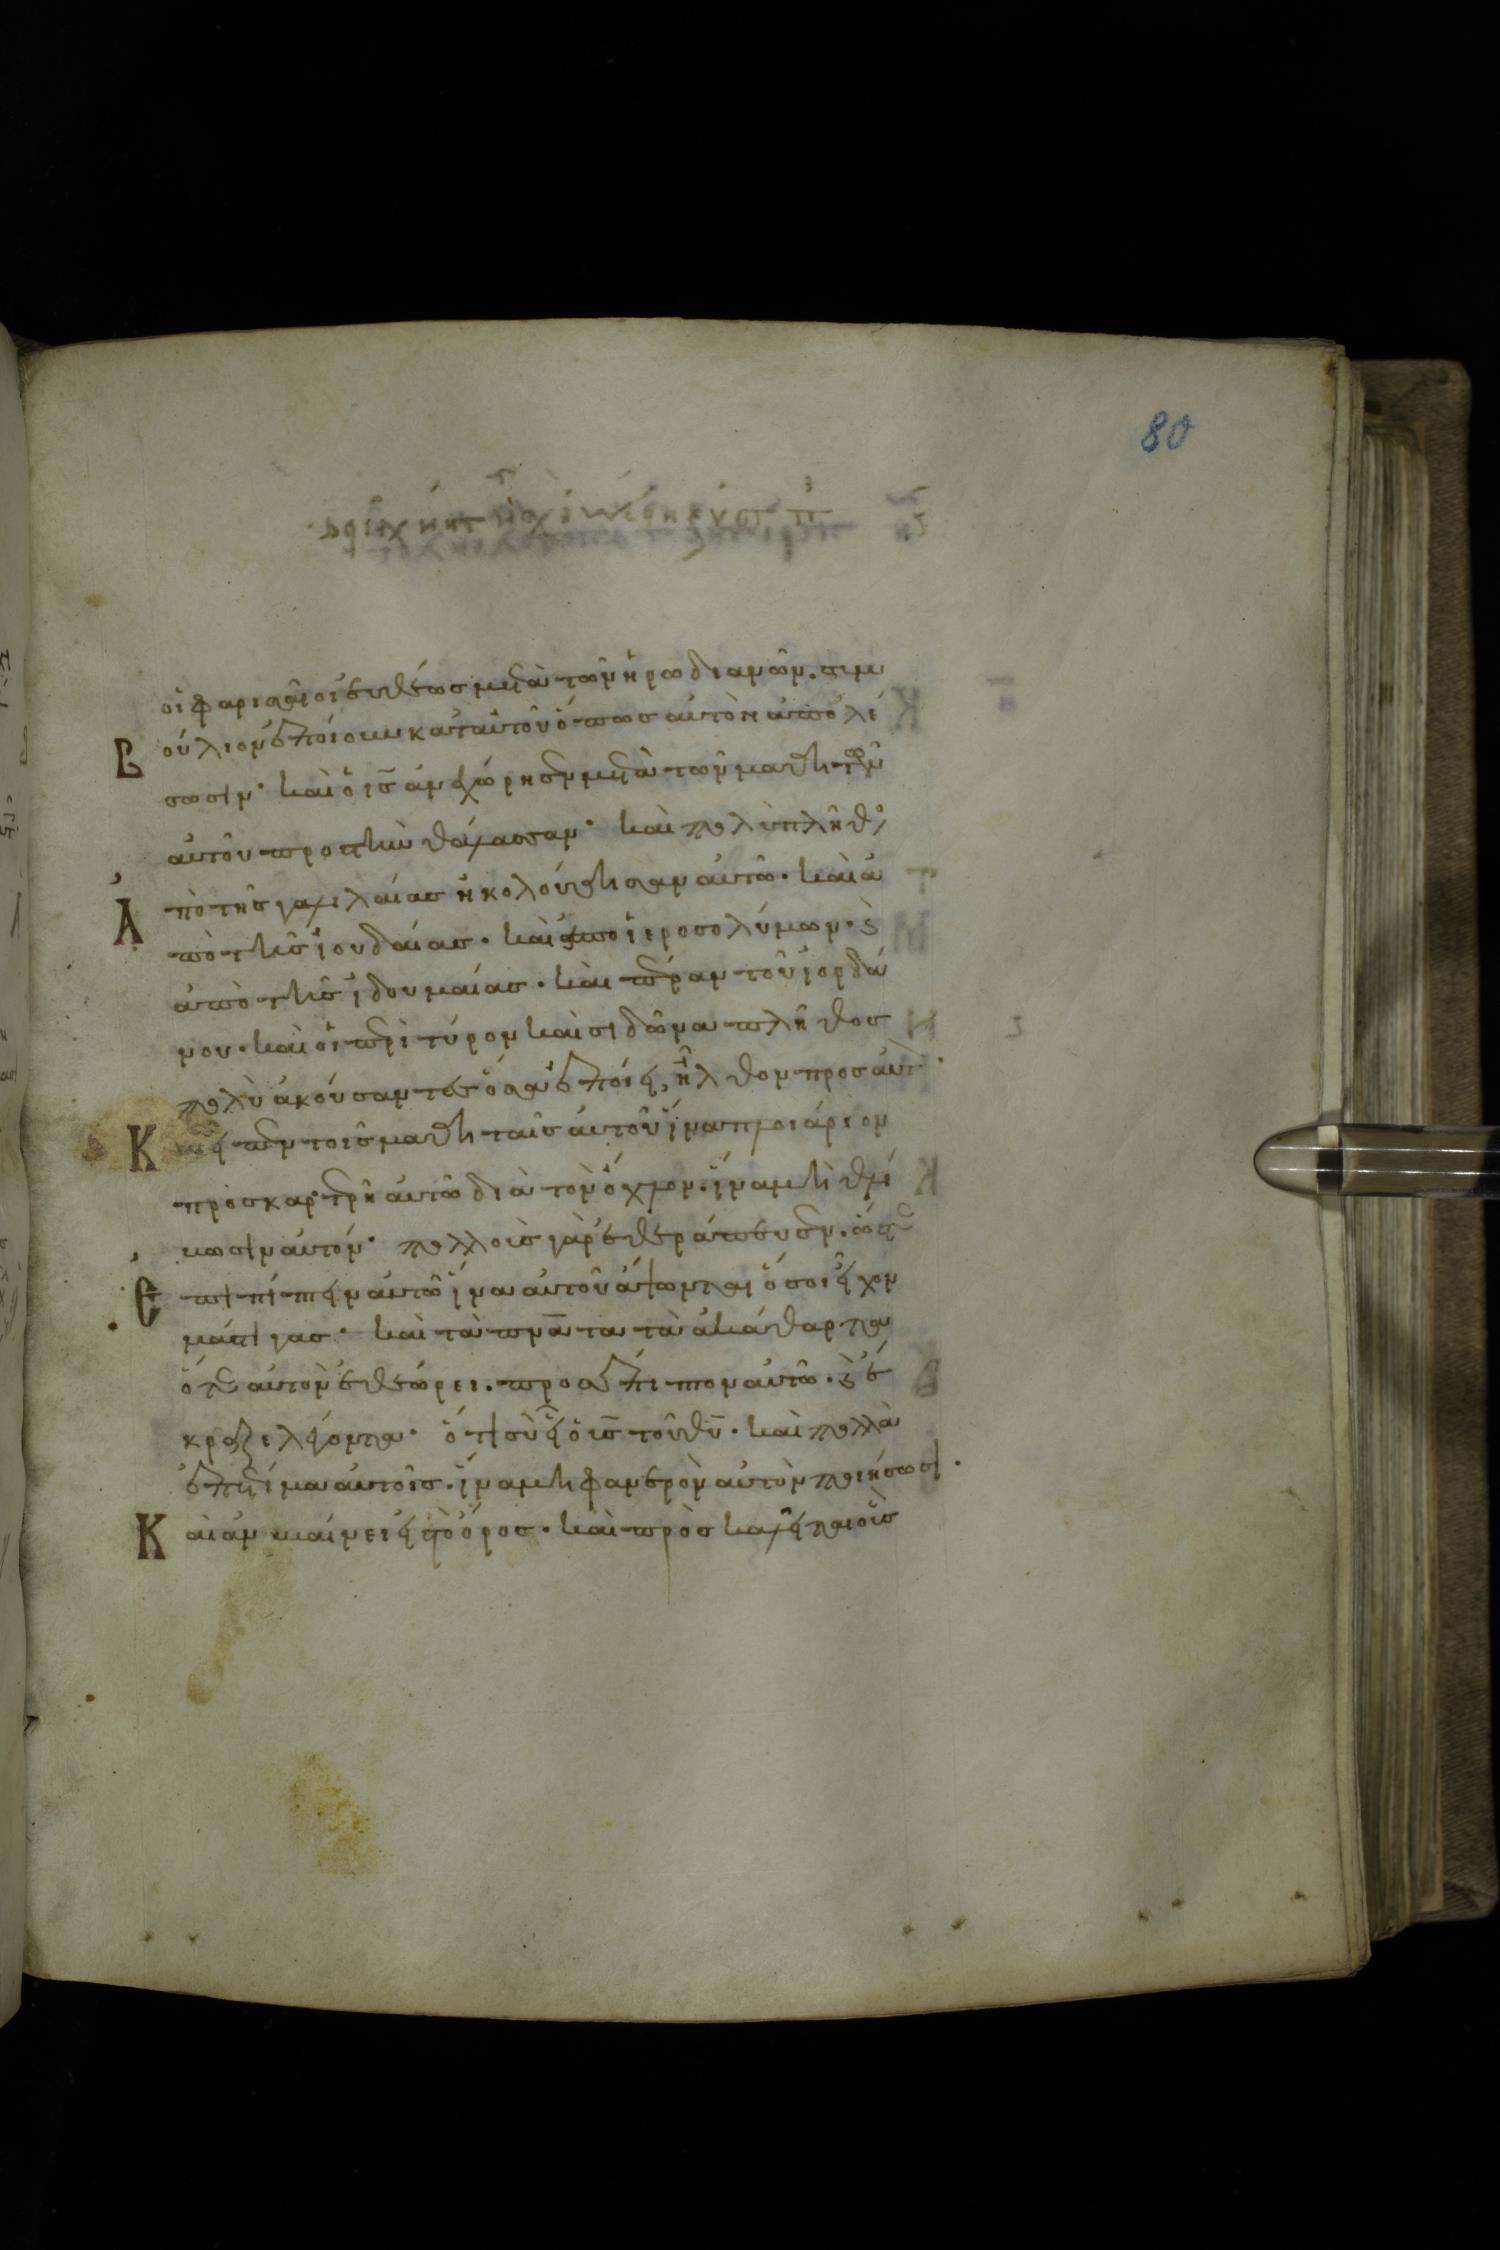 80
οἱ φαρισαῖοι εὐθέως μετὰ τῶν ἡρωδιανῶν. συμ
Βούλιον ἐποίουν κατ αὐτοῦ ὅπως αὐτὸν ἀπολέ
σωσιν· καὶ ὁ ις ἀνεχώρησεν μετὰ τῶν μαθητῶν
αὐτοῦ προς τὴν θάλασσαν· καὶ πολὺ πλῆθος
ἀπὸ τῆς γαλιλαίας ἠκολούθησαν αὐτῶ. καὶ ἀ
πὸ τῆς ἰουδαίας. καὶ ἀπο ἱεροσολύμων. καὶ
ἀπὸ τῆς ἰδουμαίας. καὶ πέραν τοῦ ἰορδά
νου. καὶ οἱ περὶ τύρον καὶ σιδῶνα πλῆθος
πολὺ ἀκούσαντες ὅσα ἐποίει, ἦλθον προς αὐτ
Καὶ εἶπεν τοῖς μαθηταῖς αὐτοῦ ἵνα πλοιάριον
προσκαρτερῆ αὐτῶ διὰ τὸν ὄχλον. ἵνα μὴ θλί
βωσιν αὐτόν· πολλοὺς γὰρ ἐθεράπευσεν. ὥστε
Ἐπιπίπτειν αὐτῶ ἵνα αὐτοῦ ἅψωνται ὅσοι εἶχον
μάστιγας· καὶ τὰ πνατα τὰ ἀκάθαρτα
ὅτε αὐτὸν ἐθεώρει. προσέπιπτον αὐτῶ. καὶ ἔ
κραζε λέγοντα· ὅτι σὺ εἶ ὁ υς τοῦ θυ. καὶ πολλὰ
ἐπετίμα αὐτοῖς. ἵνα μὴ φανερὸν αὐτὸν ποιήσωσι.
Καὶ ἀναβαίνει εἰς τὸ ὄρος. καὶ προσκαλεῖται οὓς